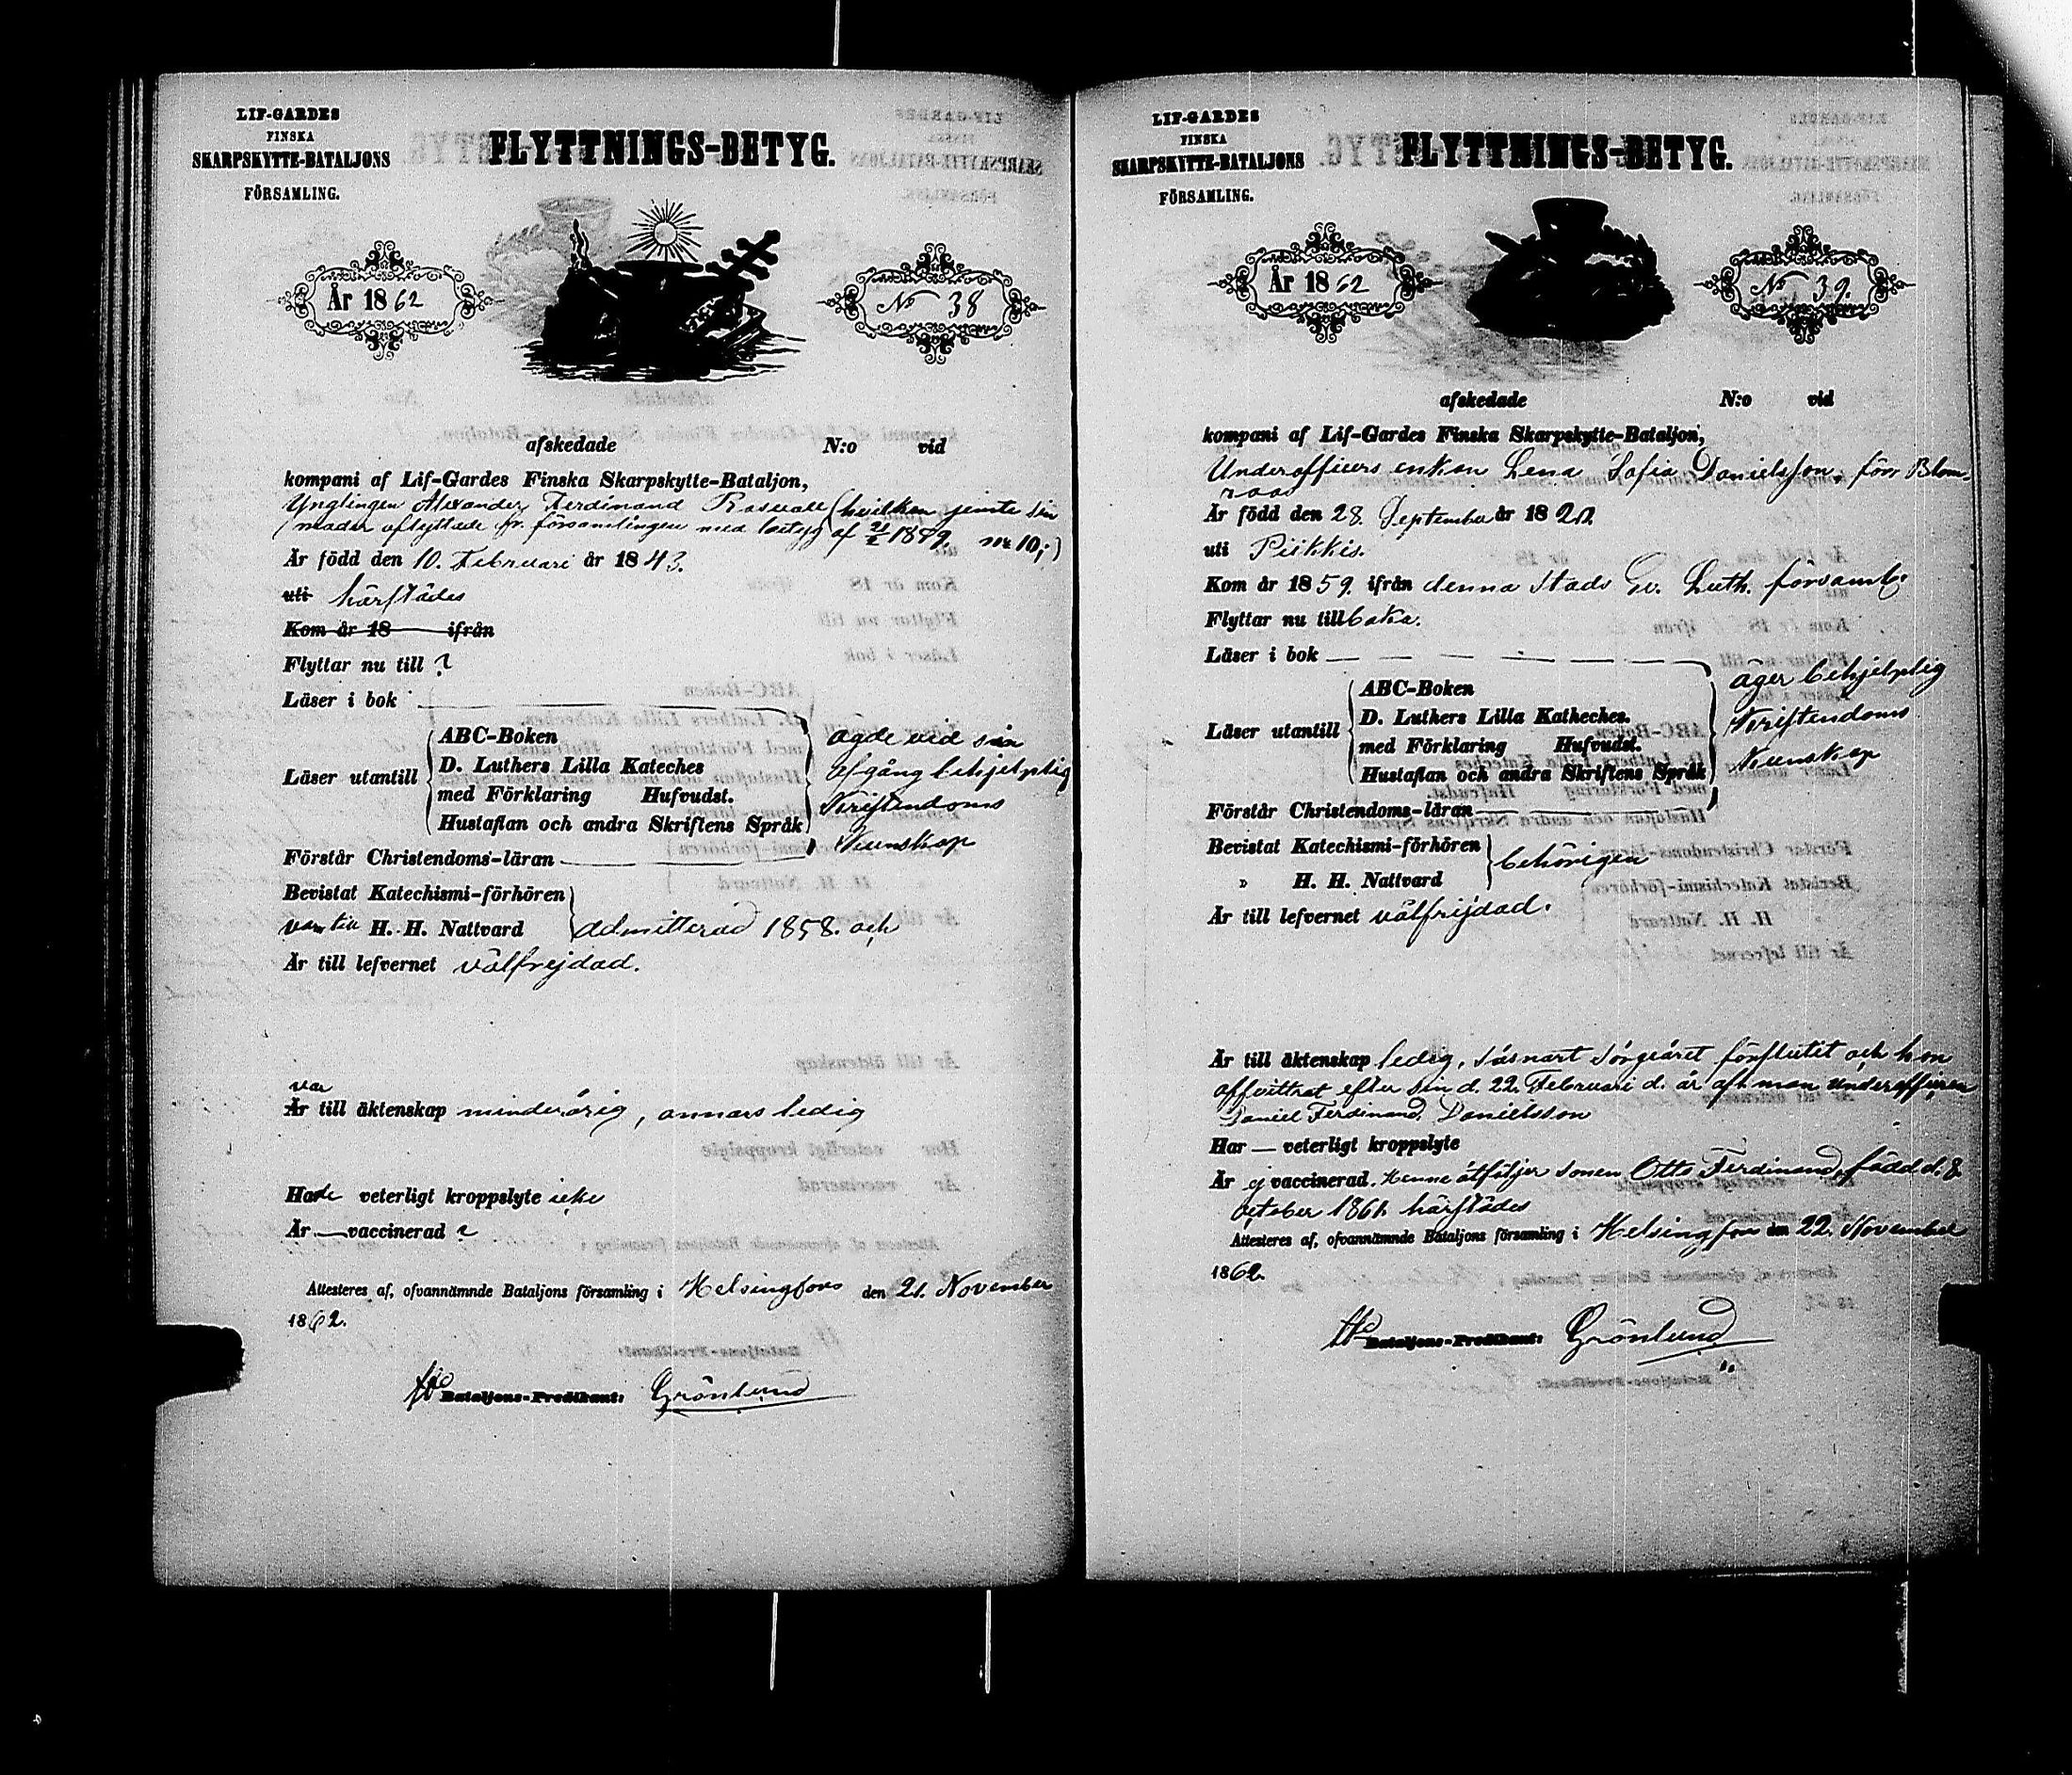 LIF-GARDES
FINSKA
SKARPSKYTTE-BATALJONS
FÖRSAMLING.
FLYTTNINGS-BETYG.
År 1862
No 38
afskedade N:o vid
kompani af Lif-Gardes Finska Skarpskytte-Bataljon,
Ynglingen Alexander Ferdinand (hvilken jemte sin
moder aflyttade fr. församlingen med betyg af No 10;)
Är född den 10. Februari år 1843.
uti härstädes
Kom år 18 ifrån
Flyttar nu till ?
Läser i bok
Läser utantill
ABC-Boken
D. Luthers Lilla Kateches
med Förklaring Hufvudst.
Hustaflan och andra Skriftens Språk
ägde vid sin
afgång behjelplig
Kristendoms
Kunskap
Förstår Christendoms-läran
Bevistat Katechismi-förhören
var till H. H. Nattvard admitterad 1858. och
Är till lefvernet välfrejdad.
var
Är till äktenskap minderårig, annars ledig
Hade veterligt kroppslyte icke
Är — vaccinerad ?
Attesteres af, ofvannämnde Bataljons församling i Helsingfors den 21. November
1862.
Bataljons-Predikant: Grönlund
LIF-GARDES
FINSKA
SKARPSKYTTE-BATALJONS
FÖRSAMLING.
FLYTTNINGS-BETYG.
År 1862
No 39.
afskedade N:o vid
kompani af Lif-Gardes Finska Skarpskytte-Bataljon,
Underofficers enkan Lena Sofia Danielsson, förr Blom-
roos
Är född den 28. September år 18
uti Piikkis.
Kom år 1859. ifrån denna Stads Ev. Luth. församl.
Flyttar nu tillbaka.
Läser i bok
Läser utantill
ABC-Boken
D. Luthers Lilla Katheches.
med Förklaring Hufvudst.
Hustaflan och andra Skriftens Språk
äger behjelplig
Kristendoms
Kunskap
Förstår Christendoms-läran
Bevistat Katechismi-förhören
" H. H. Nattvard
behörigen
Är till lefvernet välfrejdad.
Är till äktenskap ledig, såsnart sorgeåret förflutit och hon
afvittrat efter sin d. 22. Februari d. år afl. man underofficeren
Daniel Ferdinand Danielsson
Har — veterligt kroppslyte
Är ej vaccinerad. Henne åtföljer sonen Otto Ferdinand, född d. 8
October 1861. härstädes
Attesteres af, ofvannämnde Bataljons församling i Helsingfors den 22. November
1862.
Bataljons-Predikant: Grönlund